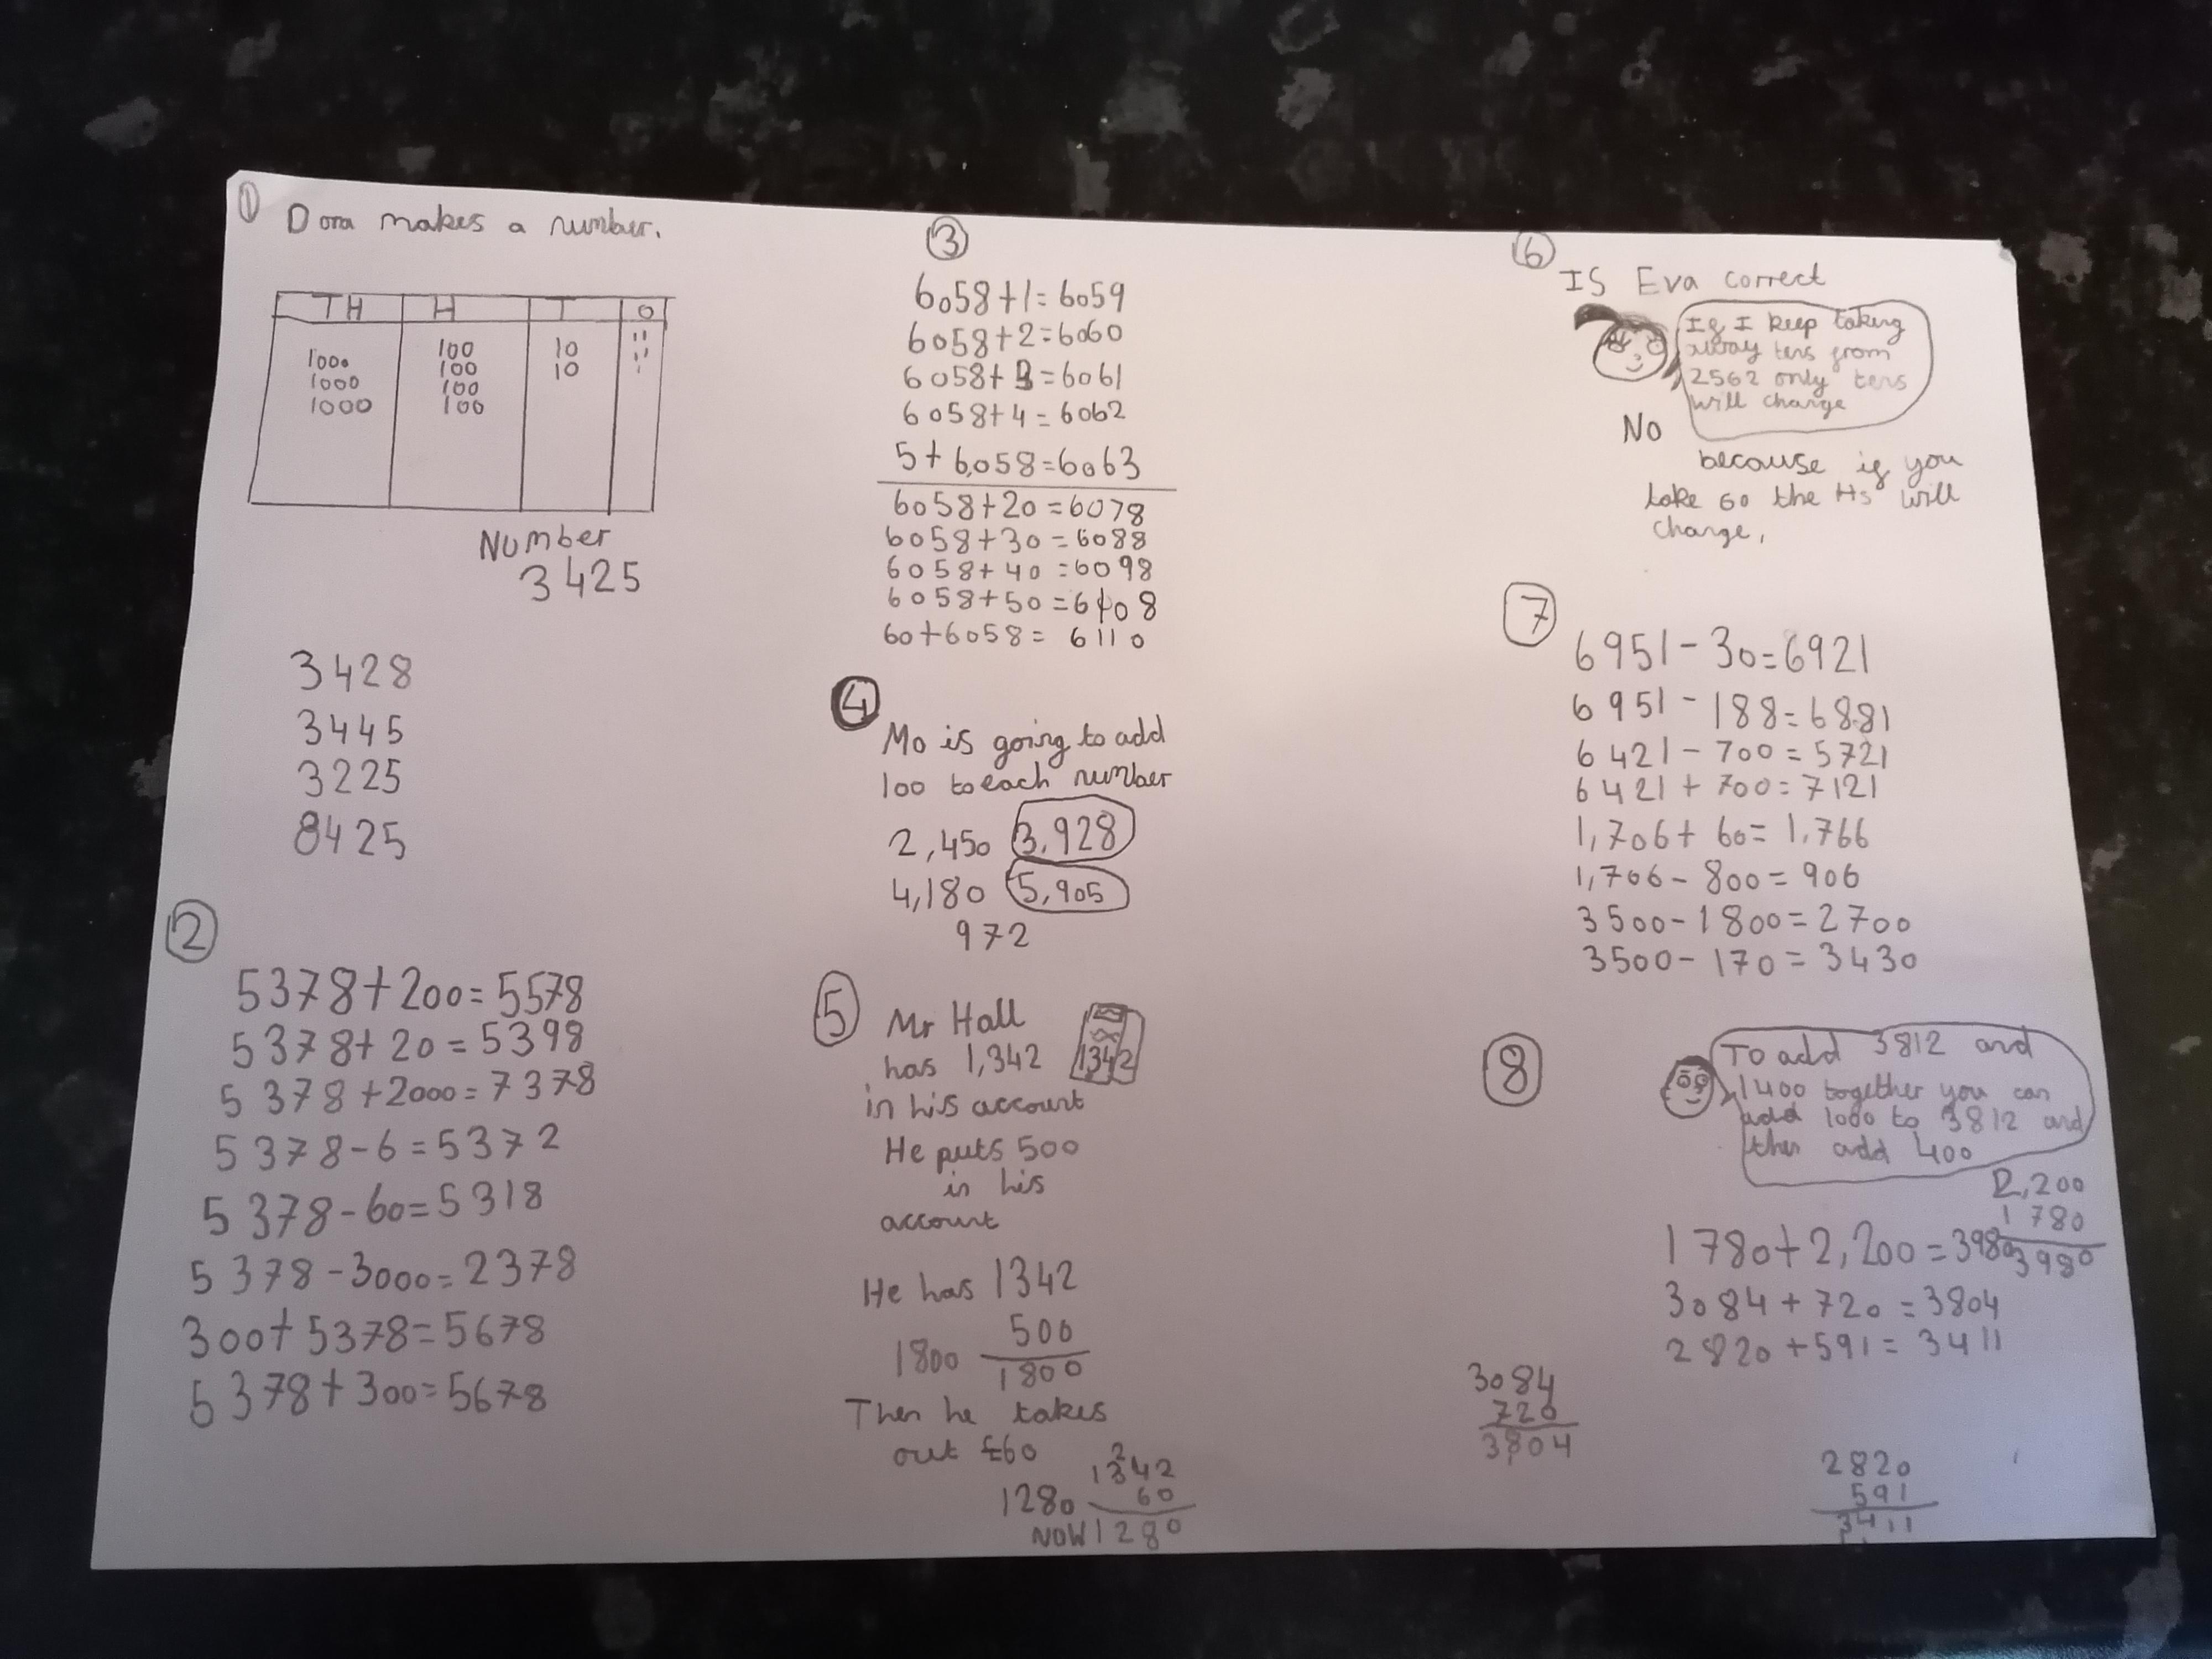 ①
Dora makes a number.
TH H T O
1000 100 10 11
1000 100 10 11
1000 100 1
100
Number
3425
3428
3445
3225
8425
②
5378+200=5578
5378+20=5398
5378+2000=7378
5378-6=5372
5378-60=5318
5378-3000=2378
300+5378=5678
5378+300=5678
③
6058+1=6059
6058+2=6060
6058+3=6061
6058+4=6062
5+6,058=6063
6058+20=6078
6058+30=6088
6058+40=6098
6058+50=6108
60+6058= 6110
④
Mo is going to add
100 to each number
2,450 3,928
4,180 5,905
972
⑤
Mr Hall
has 1,342 1342
in his account
He puts 500
in his
account
He has 1342
500
1800 1800
Then he takes
out £60
2
1342
60
1280
NOW 1280
⑥
IS Eva correct
If I keep taking
away tens from
2562 only tens
will change
No
because if you
take 60 the Hs will
change,
⑦
6951-30=6921
6951-188=6881
6421-700=5721
6421+700=7121
1,706+60=1,766
1,706-800=906
3500-1800=2700
3500-170=3430
⑧
To add 3812 and
1400 together you can
add 1000 to 3812 and
then add 400
2,200
1780
3980
1780+2,200=3980
3084+720=3804
2820+591=3411
3084
720
3804
2820
591
3411